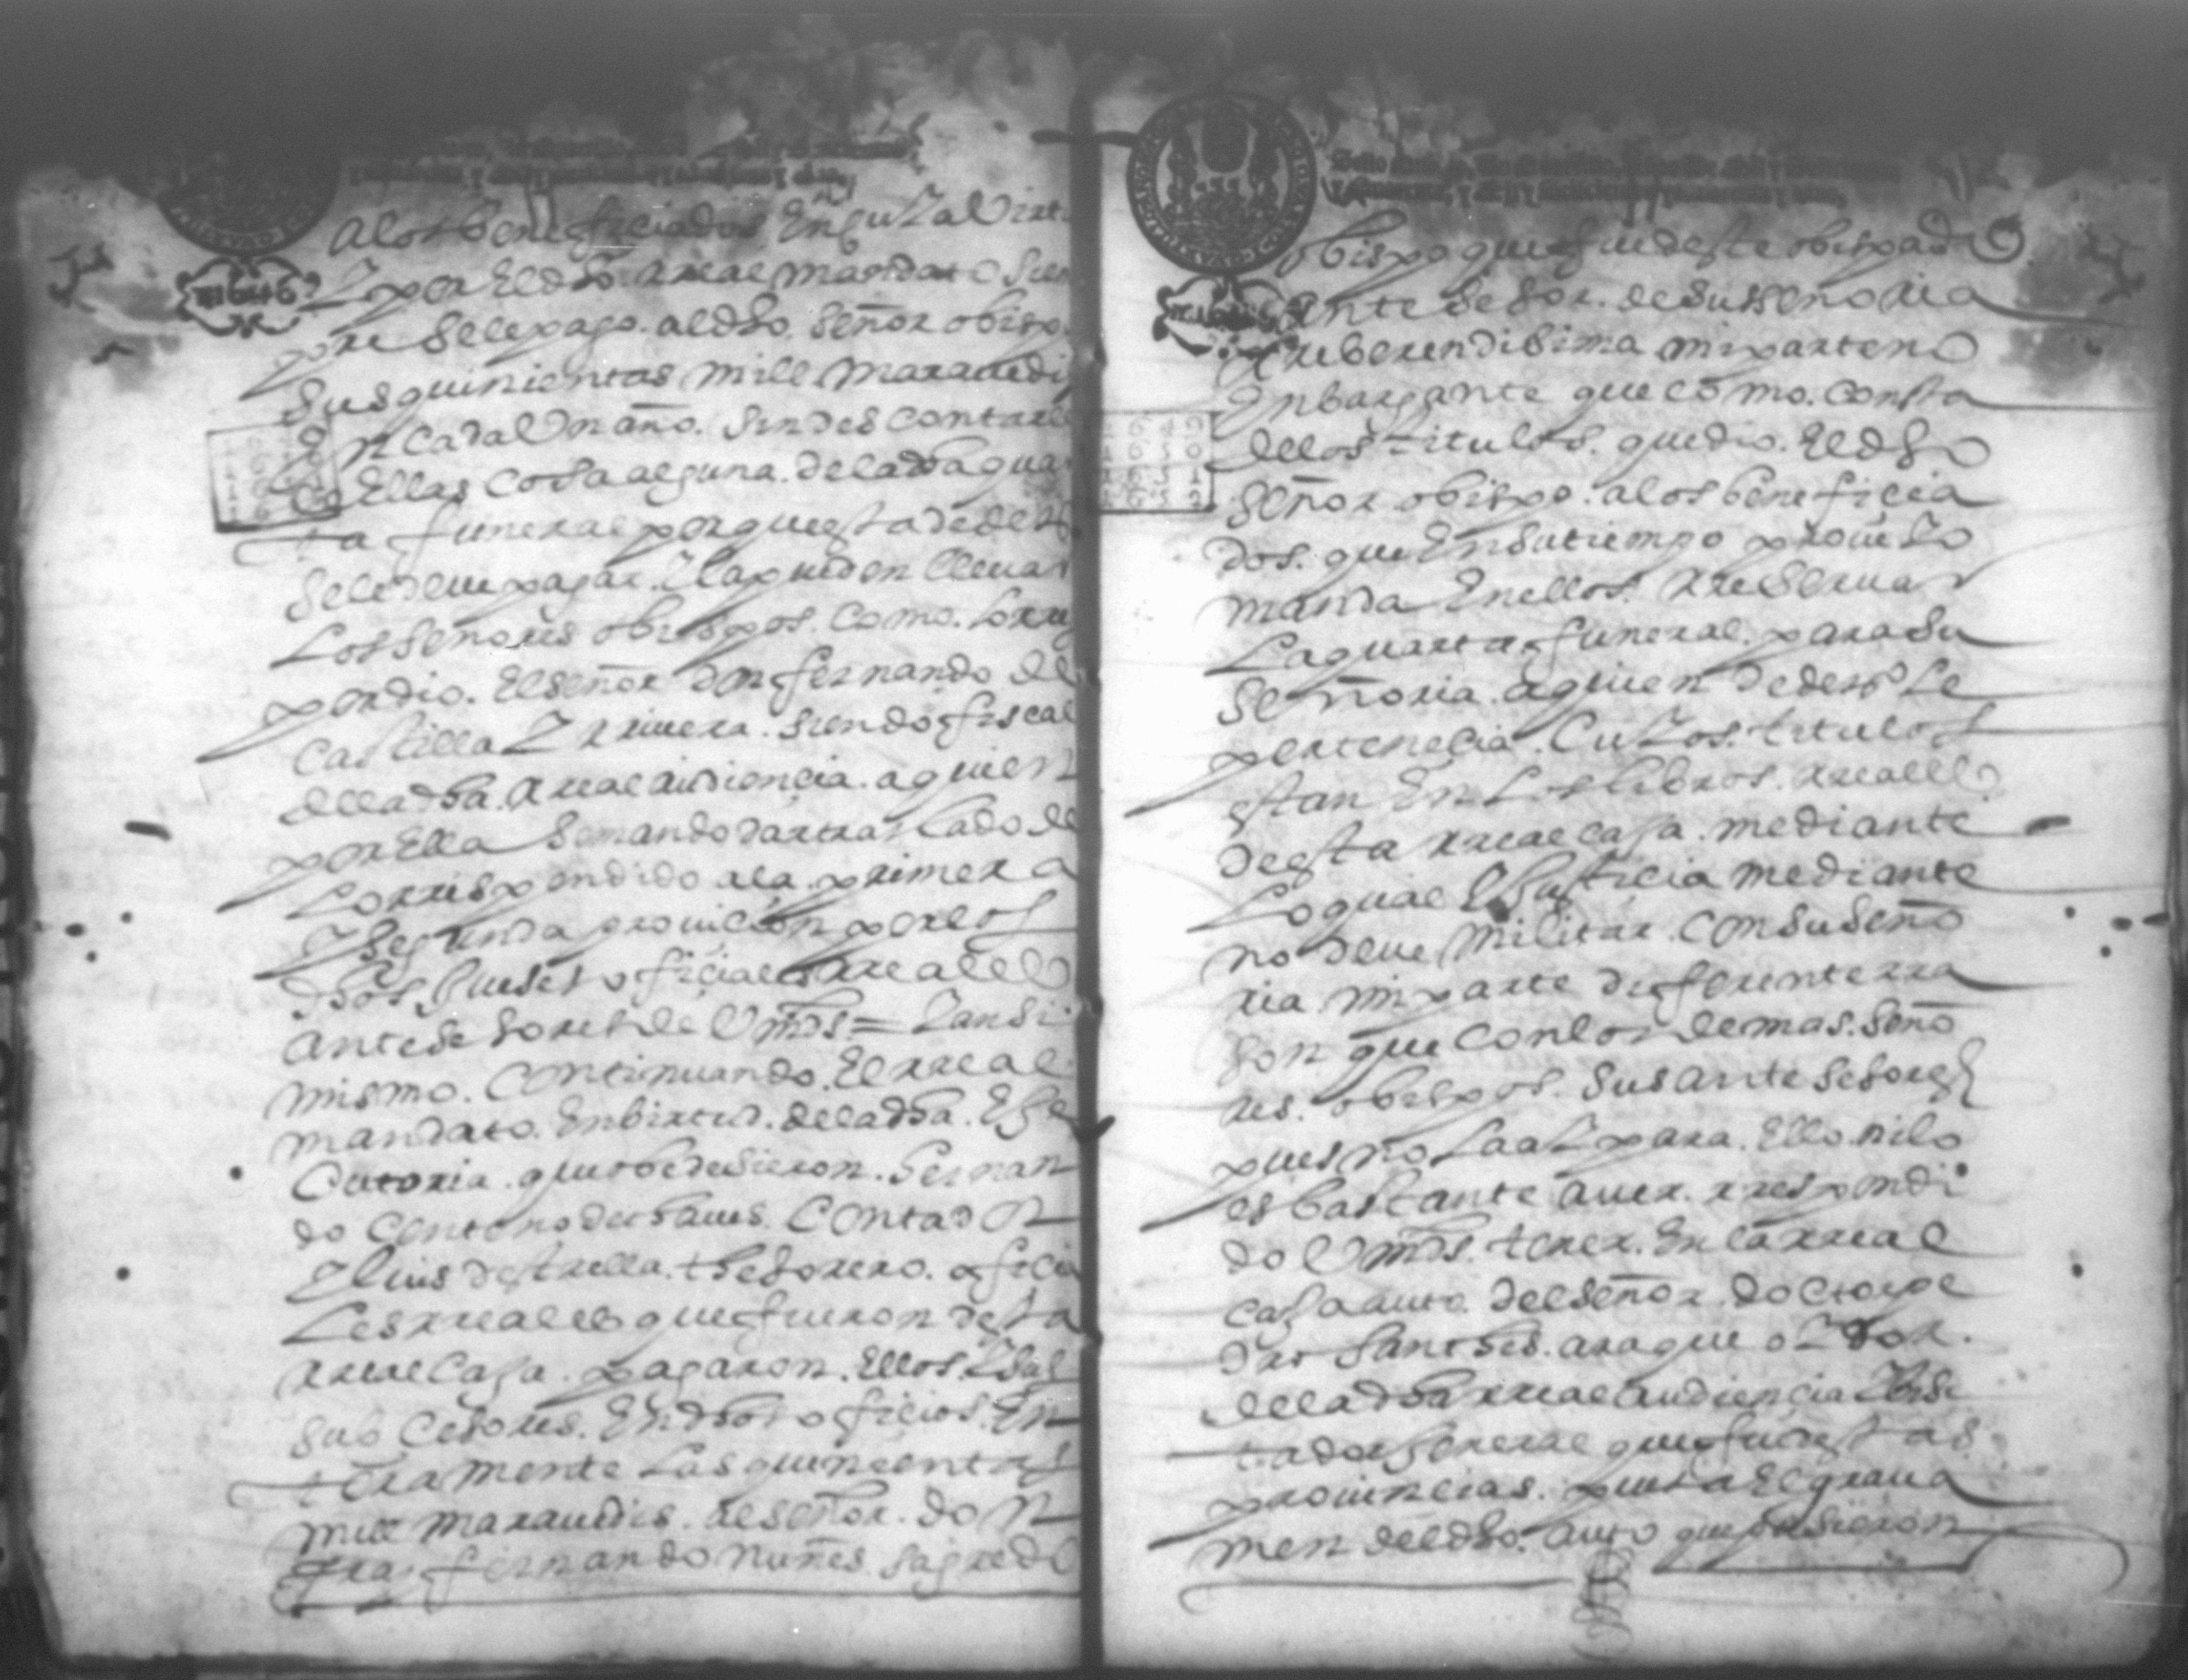 a los beneficiados En cuya Virtu
Y por El dho. rreal mandato Siem
pre Se le pago. al dho. Señor obispo
Sus quinientas mill maravedis
En cada Un año. Sin des contarle
de Ellas cosa alguna. de la dha quar
ta funeral porque esta de dero
Se le deve pagar. Y la pueden llevar
Los Señores obispos. Como. Corres
pondio. El señor don fernando de
Castilla Y rrivera. siendo fiscal
de la dha. rreal audiencia. a quien
por Ella Se mando dar traslado de
Lo rrespondido a la primera
Y Segunda provicion por los
dhos Jueses oficiales rreales
antesesores de Vmds = Y ansi
mismo. Continuando. El rreal
mandato. En birtud. de la dha. Exe
Cutoria. que obedesieron. Hernan
do Centeno de chaves. Contador
Y luis destrella. thesorero. oficia
Les rreales que fueron desta
rreal Caja. pagaron. Ellos. Y Sus
sub Cesores. En dhos oficios. En
teramente Las quinientas
mill maravedis. al señor. don
fray fernando nuñes sagredo
1646
1649
1650
1651
1652
obispo que fue deste obispado
antesesor. de Su Señoria
rreberendisima mi parte no
Enbargante que como. consta
de los titulos. que dio. El dho
Señor obispo. a los beneficia
dos. que En su tiempo proveyo
manda En ellos. rreservar
La quarta funeral. para Su
Señoria. a quien de dero Le
pertenecia. Cuyos. titulos
estan En Los libros. rreales
de esta rreal caja. mediante
Lo qual E Justicia mediante
no deve militar. con su Seño
ria mi parte diferente rra
son que con los demas. Seño
res. obispos. Sus antesesores
pues no La ay para. Ello. ni lo
es bastante aver. rrespondi
do Vmds. tener. En la rreal
caja auto. del señor. doctor pe
dro Sanches. araque oydor.
de la dha rreal audiencia Y bisi
tador general que fue destas
provincias. puesta El grava
men del dho. auto que pusieron